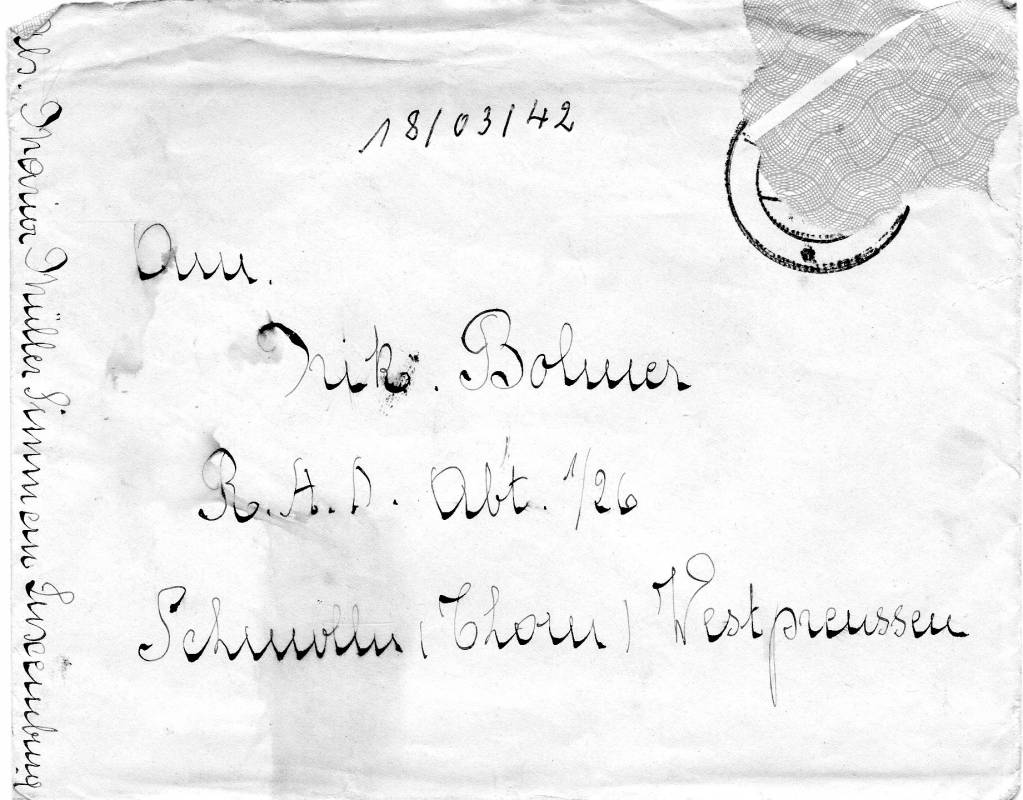 18/03/42
Arm.
Nik. Bolmer
R.A.D. Abt. 1/26
Schmolln (Thorn) Westpreussen
Maria Müller Simmern Luxemburg